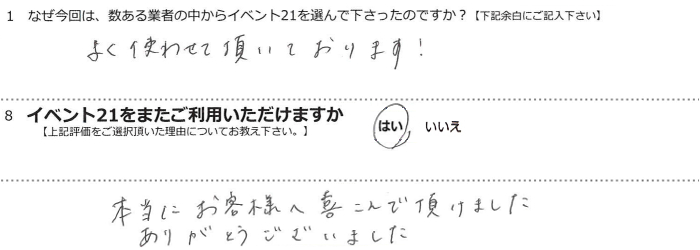 1 なぜ今回は、数ある業者の中からイベント21を選んで下さったのですか？【下記余白にご記入下さい】
よく使わせて頂いております！
8 イベント21をまたご利用いただけますか はい いいえ
【上記評価をご選択頂いた理由についてお教え下さい。】
本当にお客様へ喜こんで頂けました
ありがとうございました